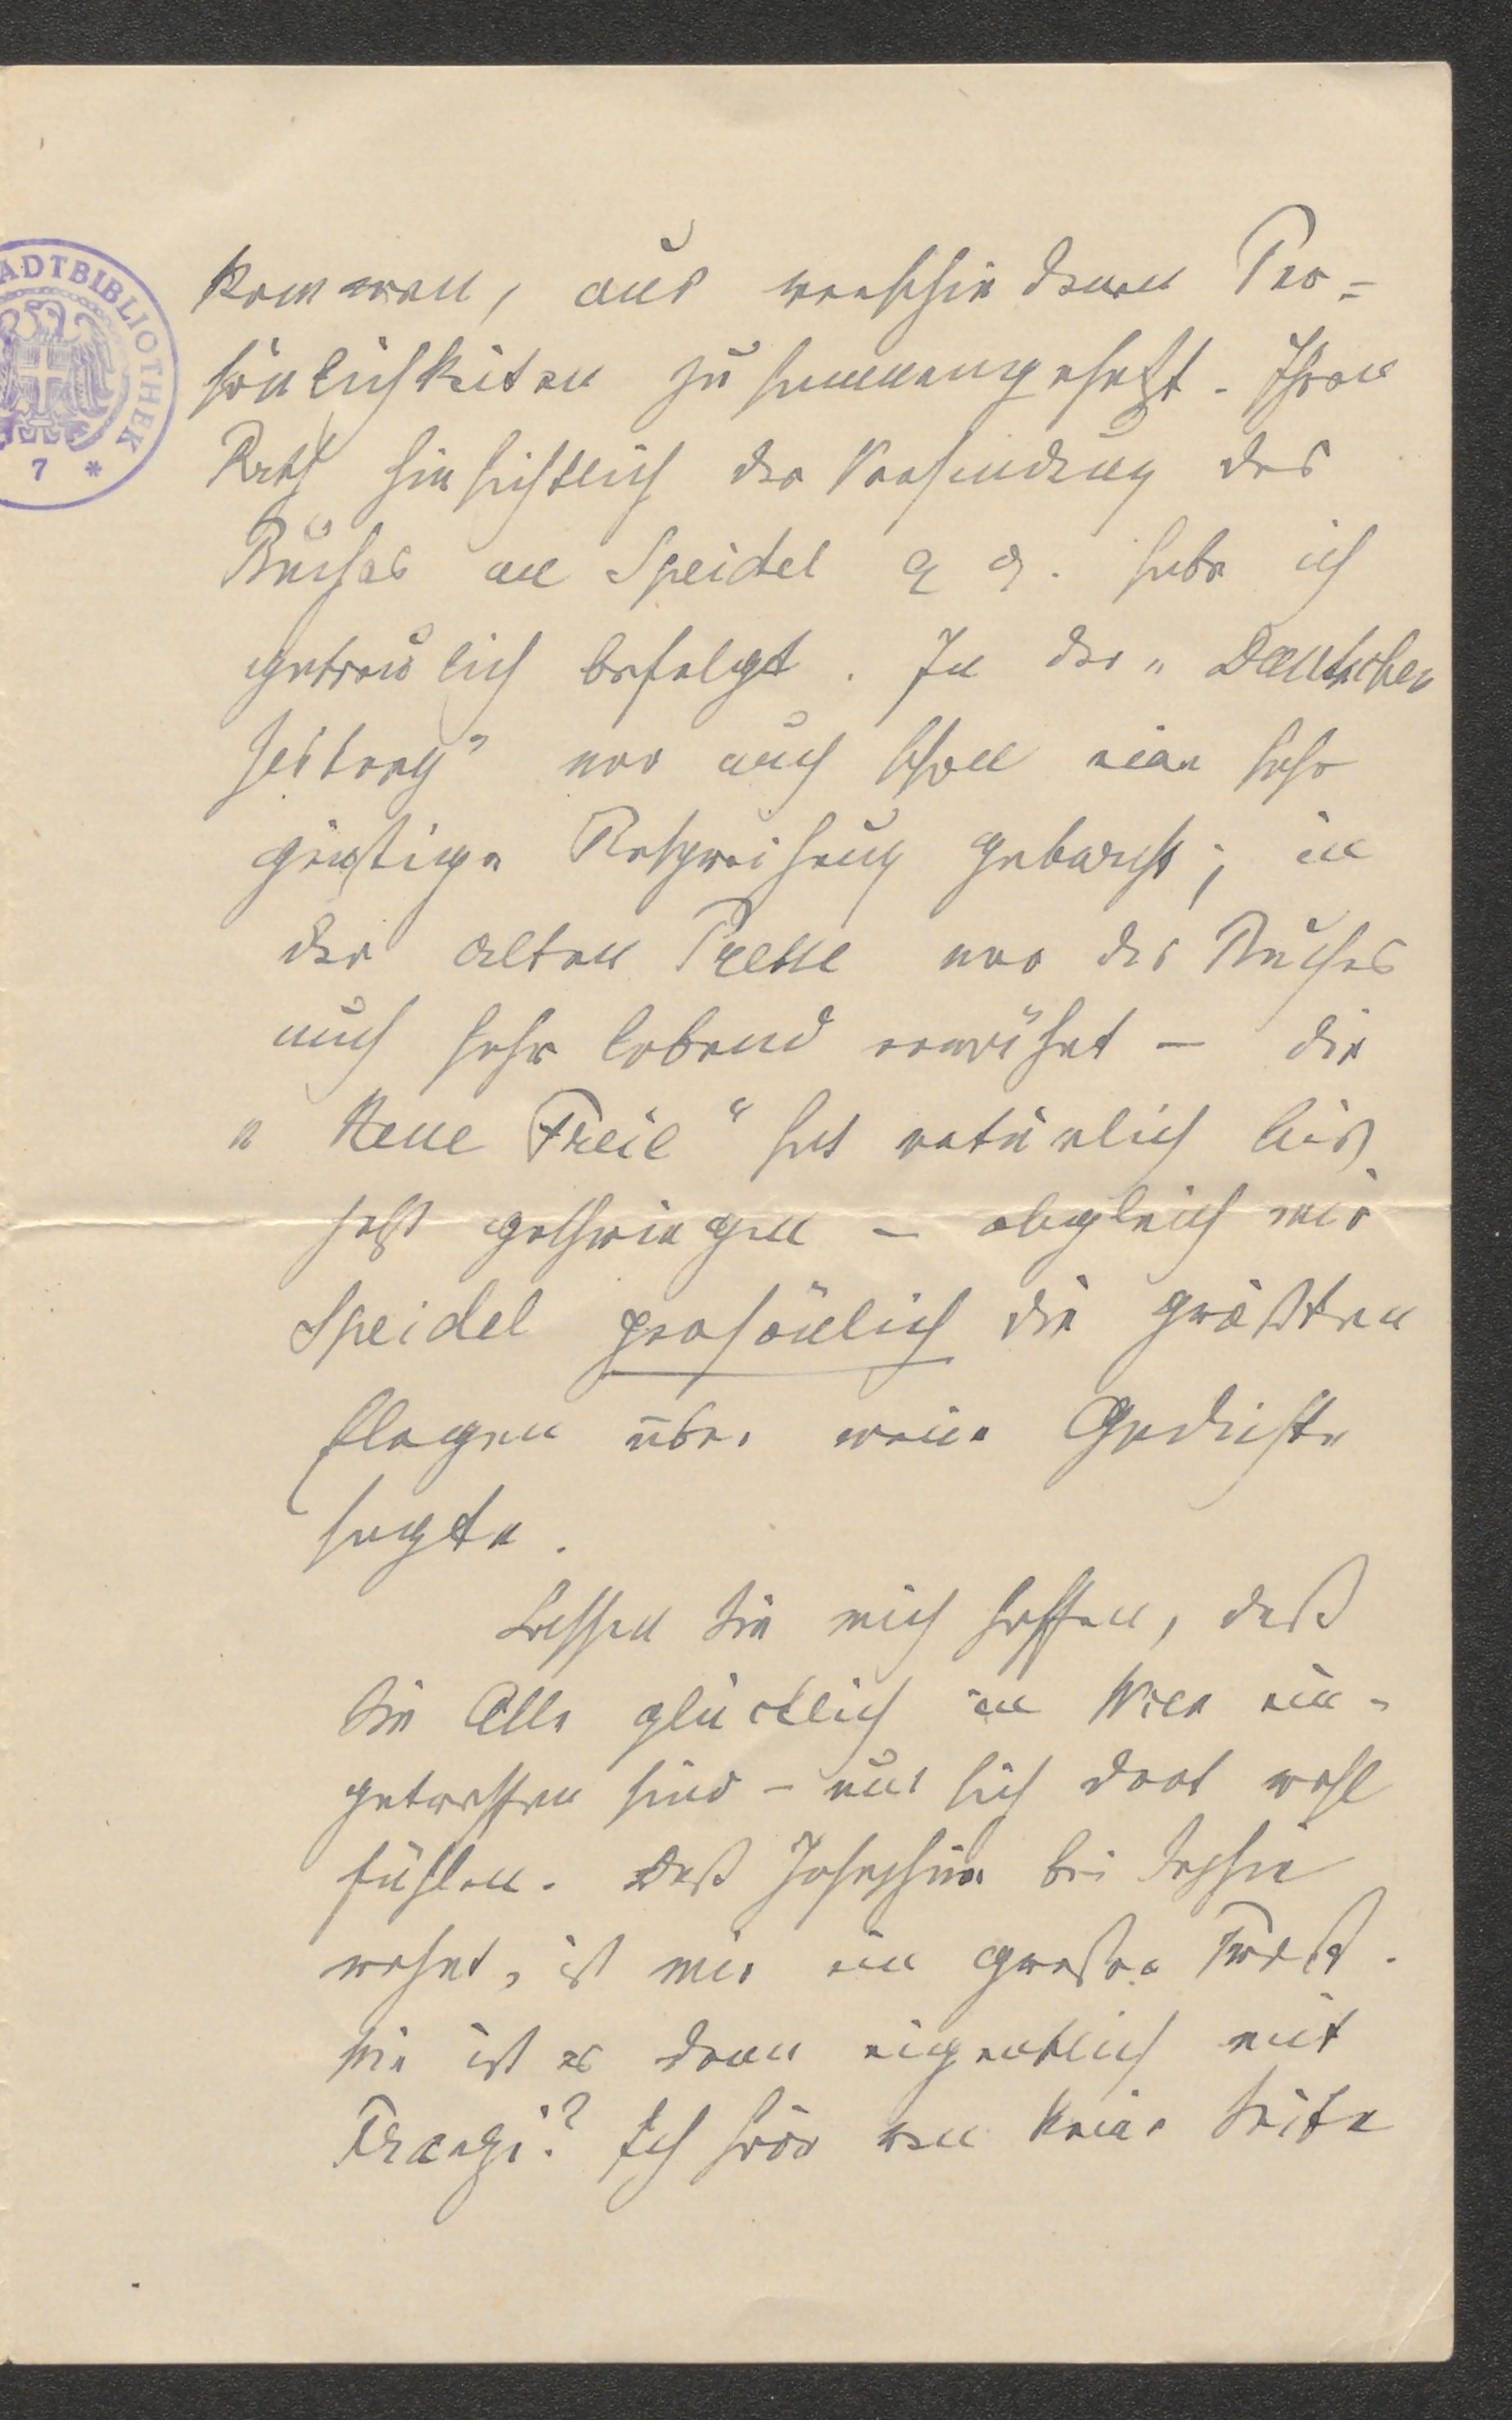 kommen, aus verschiedenen Per=
sönlichkeiten zusammengesetzt. Ihren
Rath hinsichtlich der Versendung des
Buches an Speidel habe ich
getreulich befolgt. In der „Deutschen
Zeitung" war auch schon eine sehr
günstige Besprechung gebracht; in
der alten Presse war des Buches
auch sehr lobend erwähnt – die
„Neue Freie" hat natürlich bis
jetzt geschwiegen – obgleich mir
Speidel persönlich die größten
Elogen über meine Gedichte
sagte.
Lassen Sie mich hoffen, daß
Sie Alle glücklich in Wien ein-
getroffen sind – und sich dort wohl
fühlen. Daß Josephine bei Sophie
wohnt, ist mir ein großer Trost.
Wie ist es denn eigentlich mit
Franzi? Ich höre von keiner Seite
ADTBIBLIOTHEK
7 *